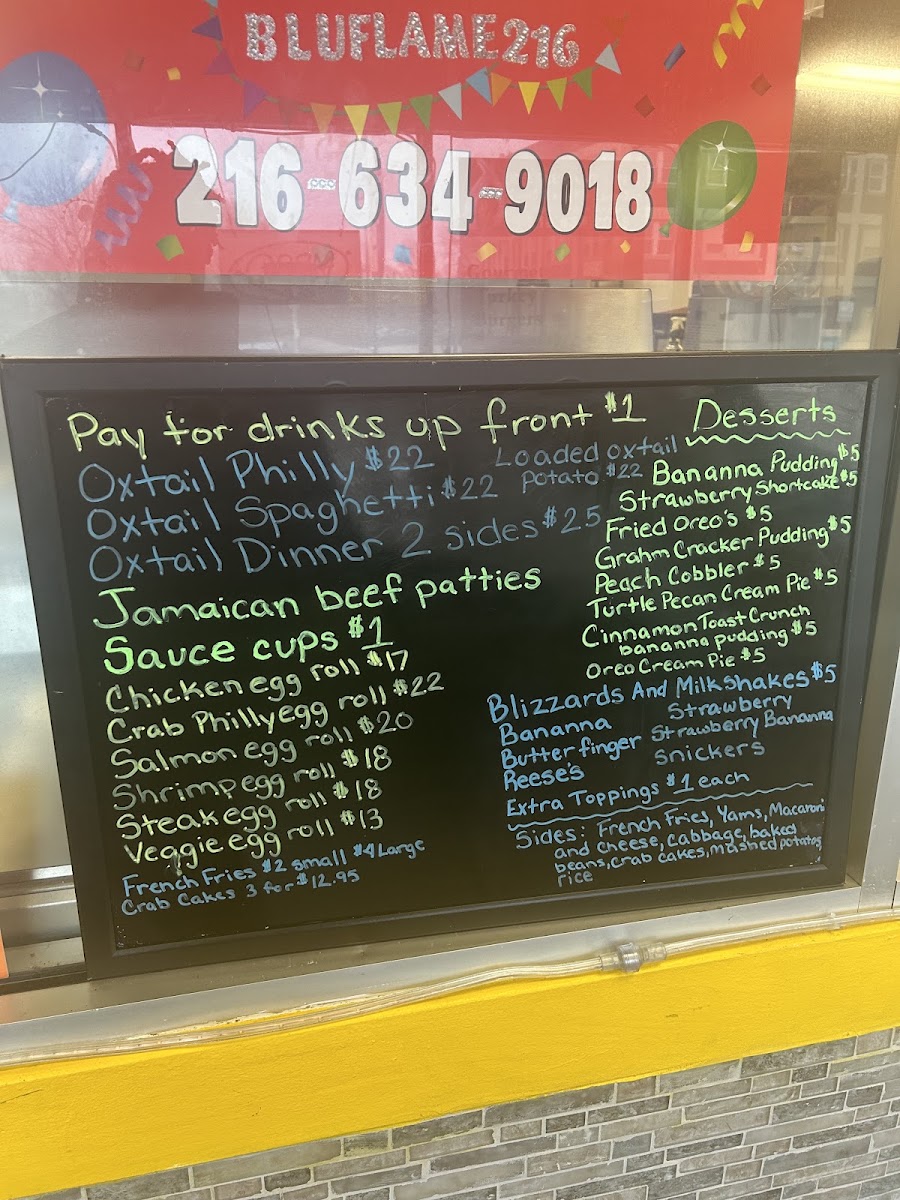 BLUFLAME216
216-634-9018
Pay for drinks up front $1
Oxtail Philly $22
Loaded oxtail
potato $22
Oxtail Spaghetti $22
Oxtail Dinner 2 sides $25
Jamaican beef patties
Sauce cups $1
Chicken egg roll $17
Crab Philly egg roll $22
Salmon egg roll $20
Shrimp egg roll $18
Steak egg roll $18
Veggie egg roll $13
French Fries $2 small $4 Large
Crab Cakes 3 for $12.95
Desserts
Bananna Pudding $5
Strawberry Shortcake $5
Fried Oreo's $5
Grahm Cracker Pudding $5
Peach Cobbler $5
Turtle Pecan Cream Pie $5
Cinnamon Toast Crunch
bananna pudding $5
Oreo Cream Pie $5
Blizzards And Milkshakes $5
Bananna Strawberry
Butterfinger Strawberry Bananna
Reese's Snickers
Extra Toppings $1 each
Sides: French Fries, Yams, Macaroni
and cheese, cabbage, baked
beans, crab cakes, mashed potatos
rice